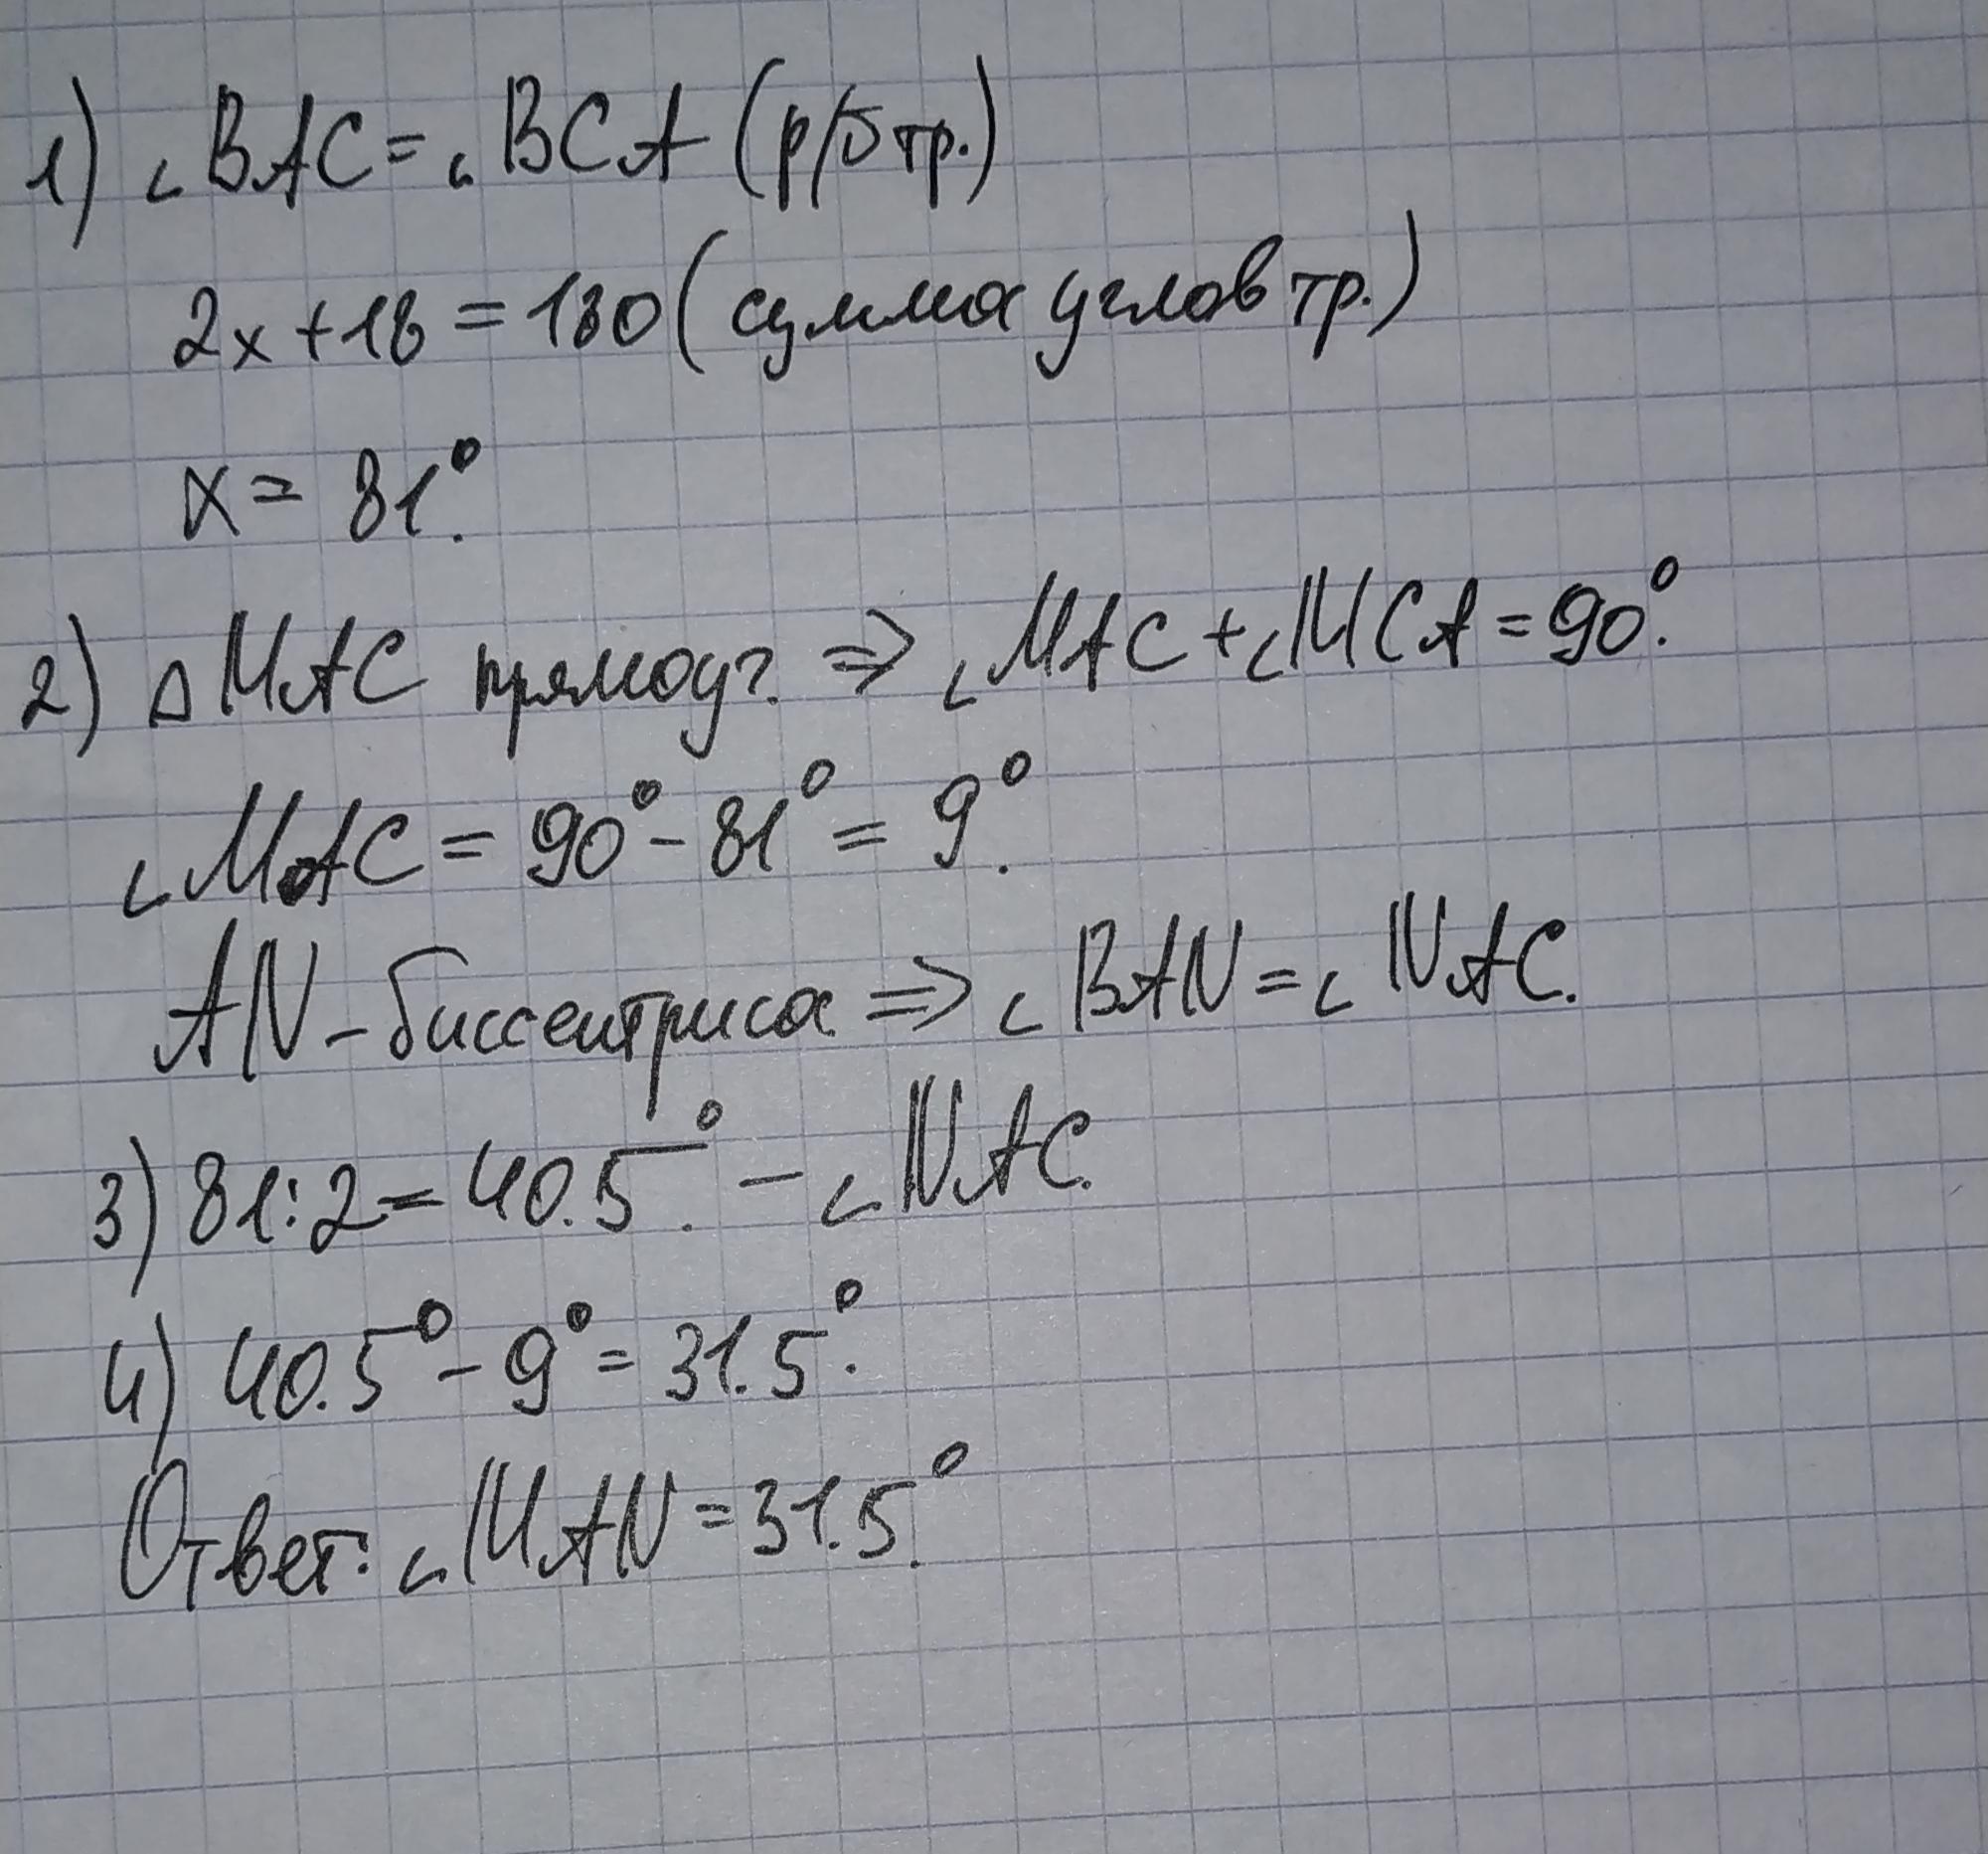 1) ∠BAC = ∠BCA (р/б тр.)
2x + 18 = 180 (сумма углов тр.)
x = 81°.
2) △MAC прямоуг. ⇒ ∠MAC + ∠MCA = 90°.
∠MAC = 90° - 81° = 9°.
AN - биссектриса ⇒ ∠BAN = ∠NAC.
3) 81 : 2 = 40.5°. - ∠NAC.
4) 40.5° - 9° = 31.5°.
Ответ: ∠MAN = 31.5°.